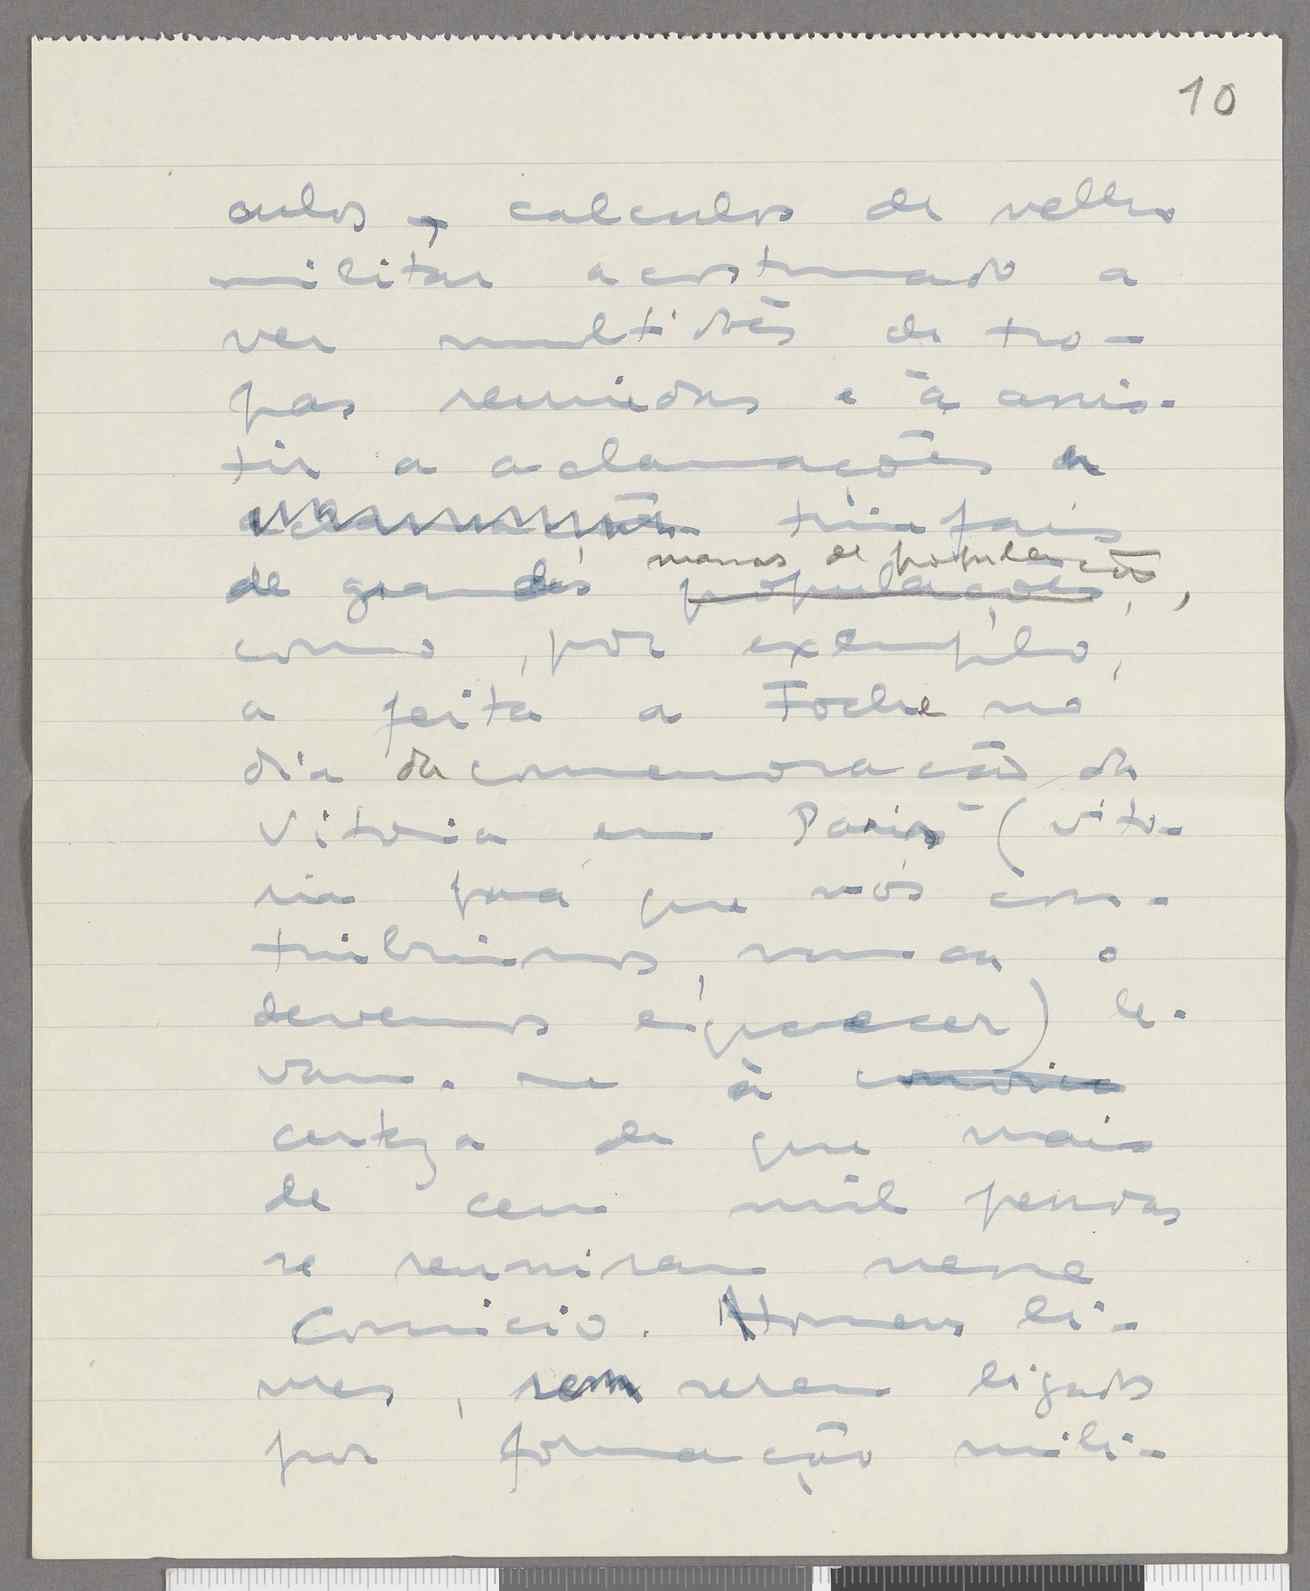 10
culos, calculos de velho
militar acostumado a
ver multidões de tro-
pas reunidas e à assis-
tir a aclamações
triunfais
massas de população
de grandes populações,
como, por exemplo,
a feita a Foche no
dia da comemoração da
Vitoria em Paris (vito-
ria para que nós con-
tribuimos, nunca o
devemos esquecer) le-
vam-me à
certeza de que mais
de cem mil pessoas
se reuniram nesse
Comicio. Homens li-
vres, sem serem ligados
por formação mili-